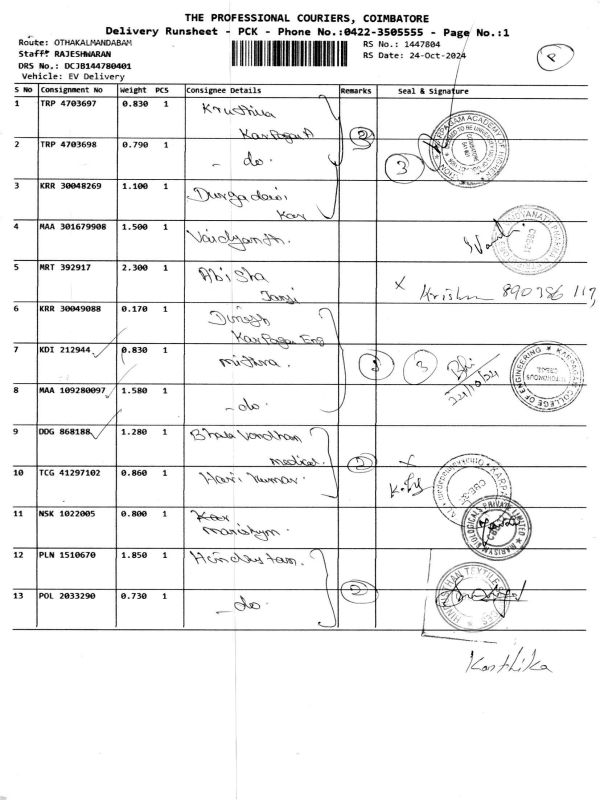 THE PROFESSIONAL COURIERS, COIMBATORE
Delivery Runsheet - PCK - Phone No.:0422-3505555 - Page No.:1
Route: OTHAKALMANDABAM
Staff: RAJESHWARAN
DRS No.: DCJB144780401
Vehicle: EV Delivery
RS No.: 1447804
RS Date: 24-Oct-2024
S No Consignment No Weight PCS Consignee Details Remarks Seal & Signature
1 TRP 4703697 0.830 1
2 TRP 4703698 0.790 1 - do. 3
3 KRR 30048269 1.100 1 Durgadevi
4 MAA 301679908 1.500 1 Vaidyanth.
5 MRT 392917 2.300 1 Abisha
x Krishna
6 KRR 30049088 0.170 1 Dinesh
Karpagam Eng
7 KDI 212944 0.830 1 Mithra. 3 3
24/10/24
KARPAGAM COLLEGE OF ENGINEERING
AUTONOMOUS
8 MAA 109280097 1.580 1 - do.
9 DDG 868188 1.280 1 Bhala Vardhan
medical. 2
10 TCG 41297102 0.860 1 Hari Kumar.
11 NSK 1022005 0.800 1 Kar
marisym.
MARISYM BIOLOGICALS PRIVATE LIMITED
12 PLN 1510670 1.850 1 Hindustan.
2
13 POL 2033290 0.730 1 - do.
Karthika